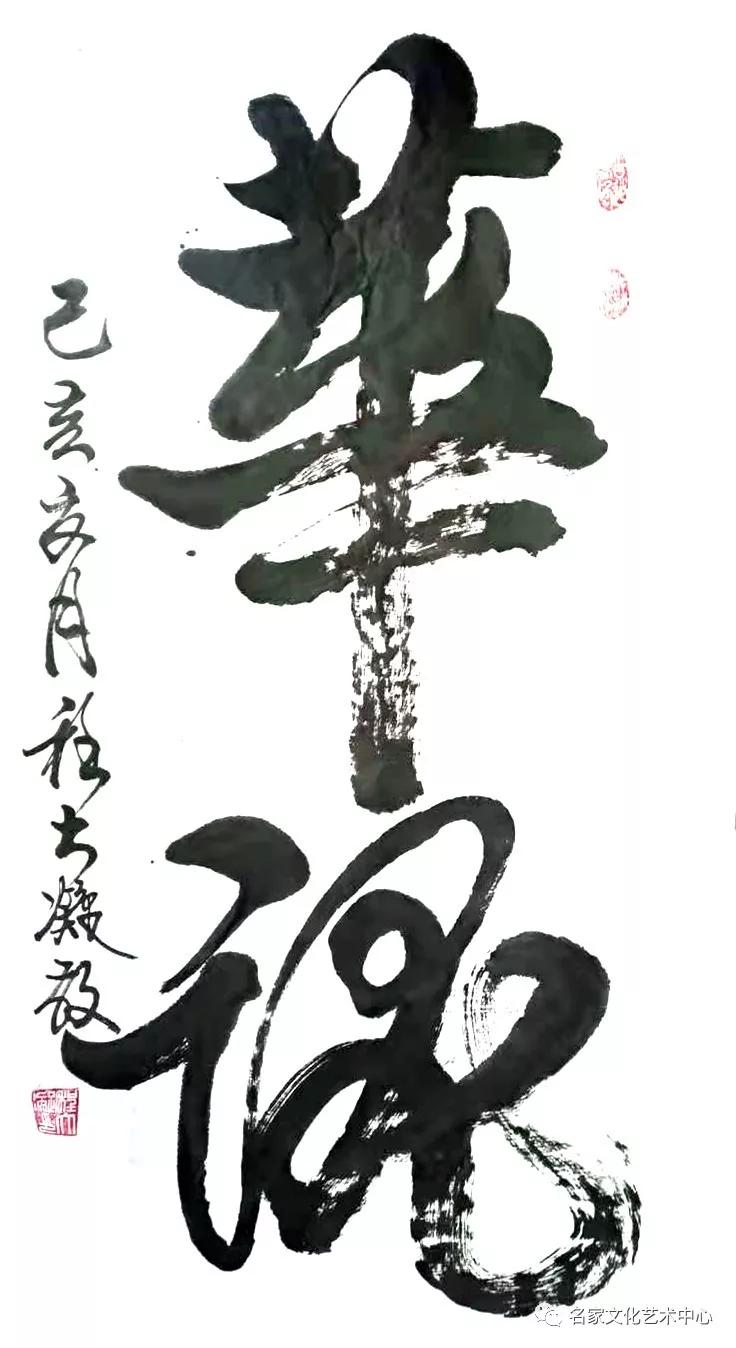 華魂
己亥亥月程凝敬
名家文化艺术中心